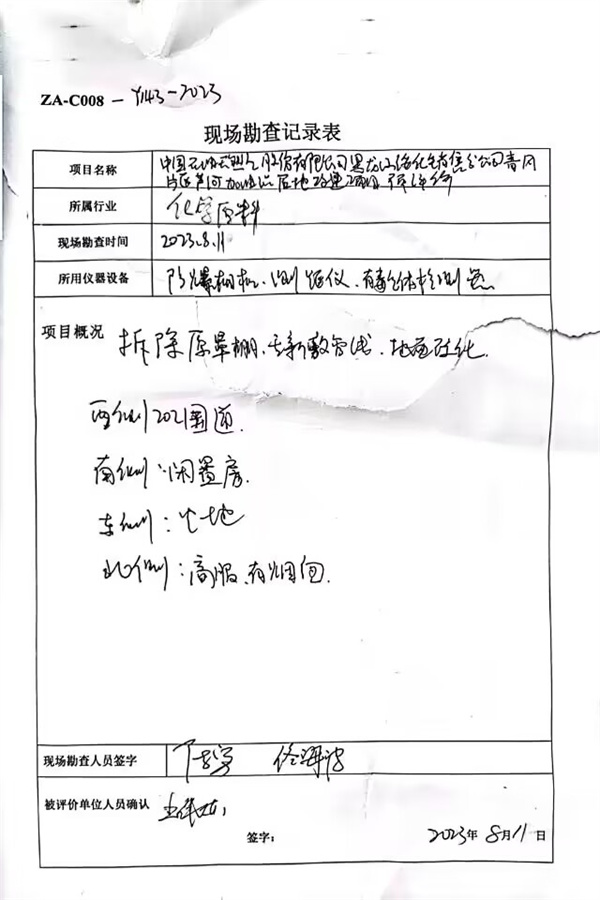 ZA-C008 - Y143-2023
现场勘查记录表
项目名称 中国石油天然气股份有限公司黑龙江
加油站 改建项目 预评价
所属行业 化学原料
现场勘查时间 2023.8.11
所用仪器设备 防爆相机、测 仪、有毒气体检测
项目概况 拆除原罩棚、重新敷管线、地面硬化
西侧 202国道
南侧:闲置房
东侧:空地
北侧:商服、有烟囱
现场勘查人员签字
被评价单位人员确认
签字: 2023年 8月11日